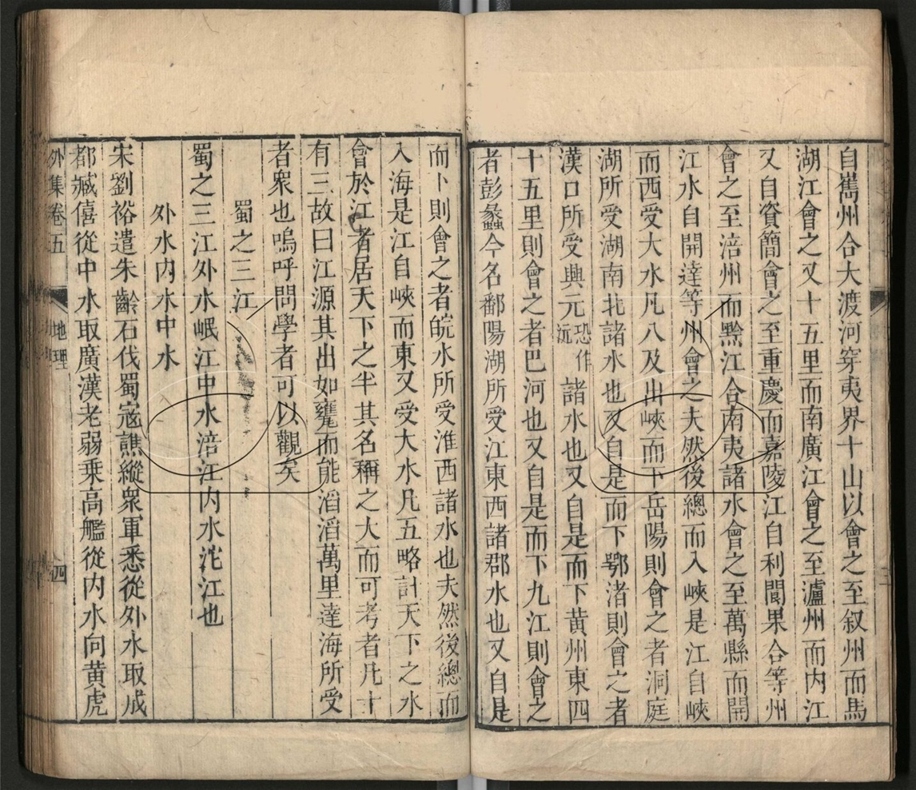 自嶲州合大渡河穿夷界十山以會之至叙州而馬
湖江會之又十五里而南廣江會之至瀘州而内江
又自資簡會之至重慶而嘉陵江自利閬果合等州
會之至涪州而黔江合南夷諸水會之至萬縣而開
江水自開達等州會之夫然後總而入峽是江自峽
而西受大水凡八及出峽而下岳陽則會之者洞庭
湖所受湖南北諸水也又自是而下鄂渚則會之者
漢口所受興元恐作沅諸水也又自是而下黃州東四
十五里則會之者巴河也又自是而下九江則會之
者彭蠡今名鄱陽湖所受江東西諸郡水也又自是
而下則會之者皖水所受淮西諸水也夫然後總而
入海是江自峽而東又受大水凡五略計天下之水
會於江者居天下之半其名稱之大而可考者凡十
有三故曰江源其出如甕而能滔滔萬里達海所受
者衆也嗚呼問學者可以觀矣
蜀之三江
蜀之三江外水岷江中水涪江内水沱江也
外水内水中水
宋劉裕遣朱齡石伐蜀冦譙縱衆軍悉從外水取成
都臧僖從中水取廣漢老弱乗高艦從内水向黃虎
外集卷五
地理
四